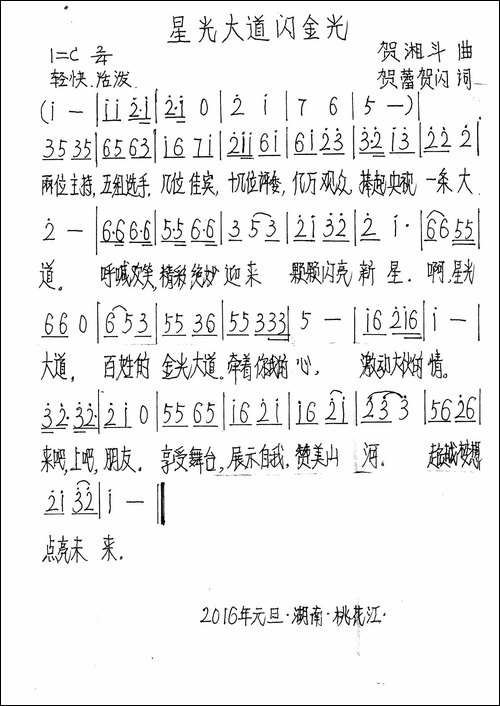 星光大道闪金光
1=C 2/4 贺湘斗 曲
轻快.活泼 贺蕾贺闪 词
(i - | i i 2·i | 2·i 0 | 2 i | 7 6 | 5 -)|
35 35 | 65 63 | i6 7i | 2ii 6i | 6i 23 | 32 i3 | 22 2 |
两位主持,五组选手.几位佳宾,十几位评委,亿万观众.捧起央视 一条大
2 - | 6·6 6·6 | 5·5 6·6 | 3 53 | 2i 32 | 2 i· | 66 55 |
道。 呼喊欢笑,精彩绝妙 迎来 颗颗闪亮 新星. 啊.星光
66 0 | 6 53 | 55 36 | 55 333 | 5 - | i6 2i6 | i - |
大道. 百姓的 金光大道.牵着你我的心, 激动大伙的情。
32·32· | 2i 0 | 55 65 | i6 2i | i6 2i | 2 3 3 | 56 26 |
来吧,上吧,朋友. 享受舞台,展示自我.赞美山 河. 超越梦想
2i 32 | i - ‖
点亮未 来.
2016年元旦·湖南·桃花江·